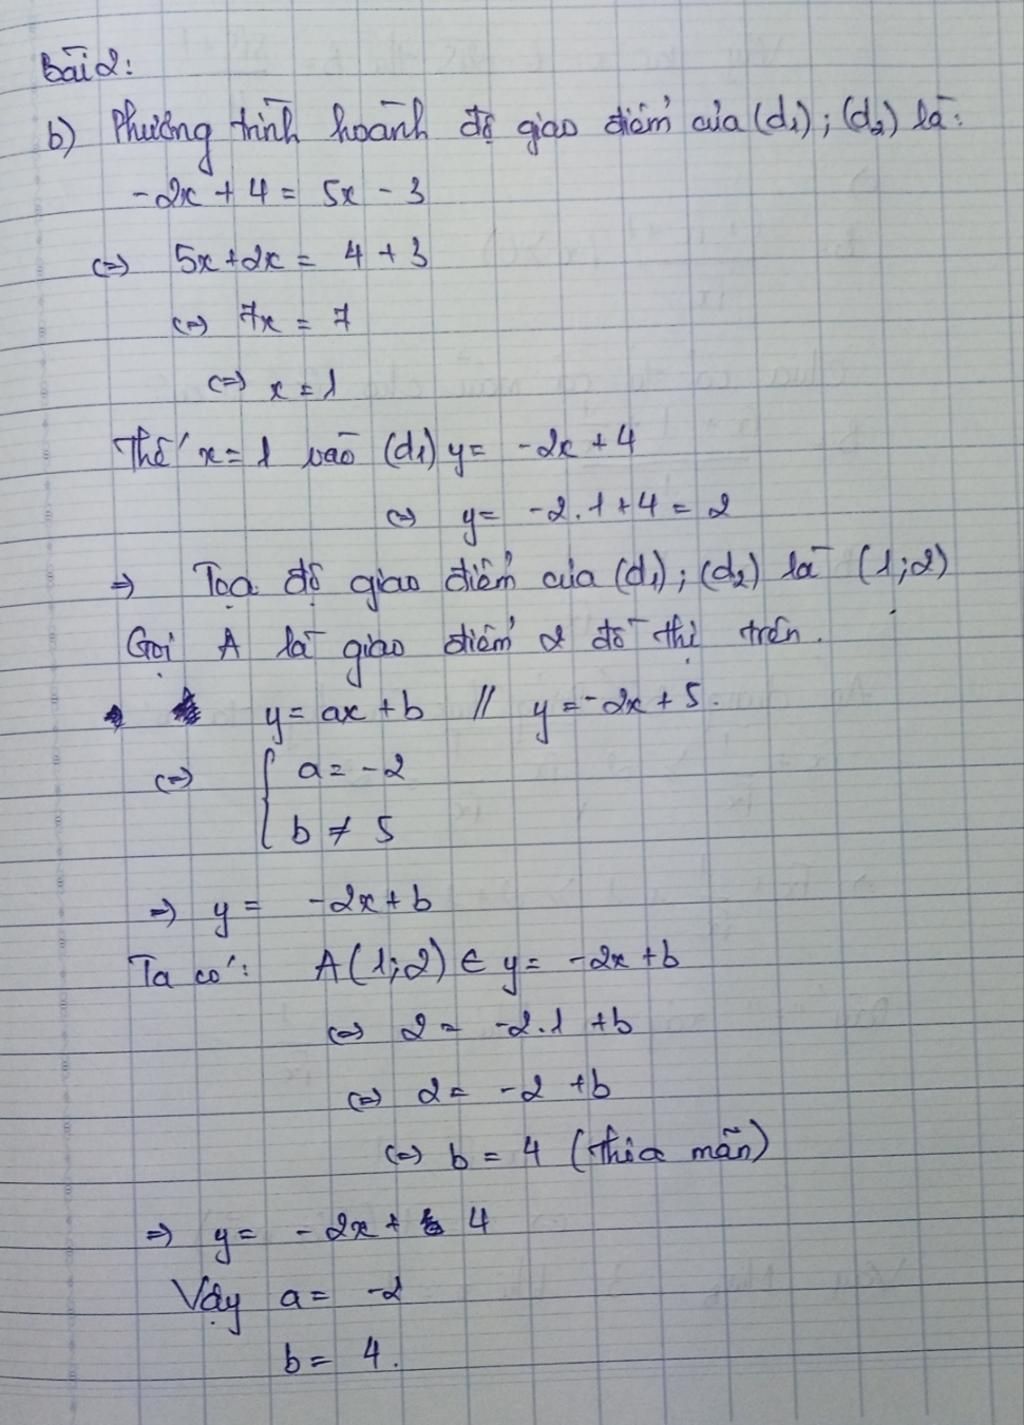 Bài 2:
b) Phương trình hoành độ giao điểm của (d₁); (d₂) là:
-2x + 4 = 5x - 3
<=> 5x + 2x = 4 + 3
<=> 7x = 7
<=> x = 1
Thế x = 1 vào (d₁) y = -2x + 4
<=> y = -2.1 + 4 = 2
=> Tọa độ giao điểm của (d₁); (d₂) là (1;2)
Gọi A là giao điểm 2 đồ thị trên.
y = ax + b // y = -2x + 5.
<=> { a = -2
b ≠ 5
=> y = -2x + b
Ta có: A(1;2) ∈ y = -2x + b
<=> 2 = -2.1 + b
<=> 2 = -2 + b
<=> b = 4 (thỏa mãn)
=> y = -2x + 4
Vậy a = -2
b = 4.